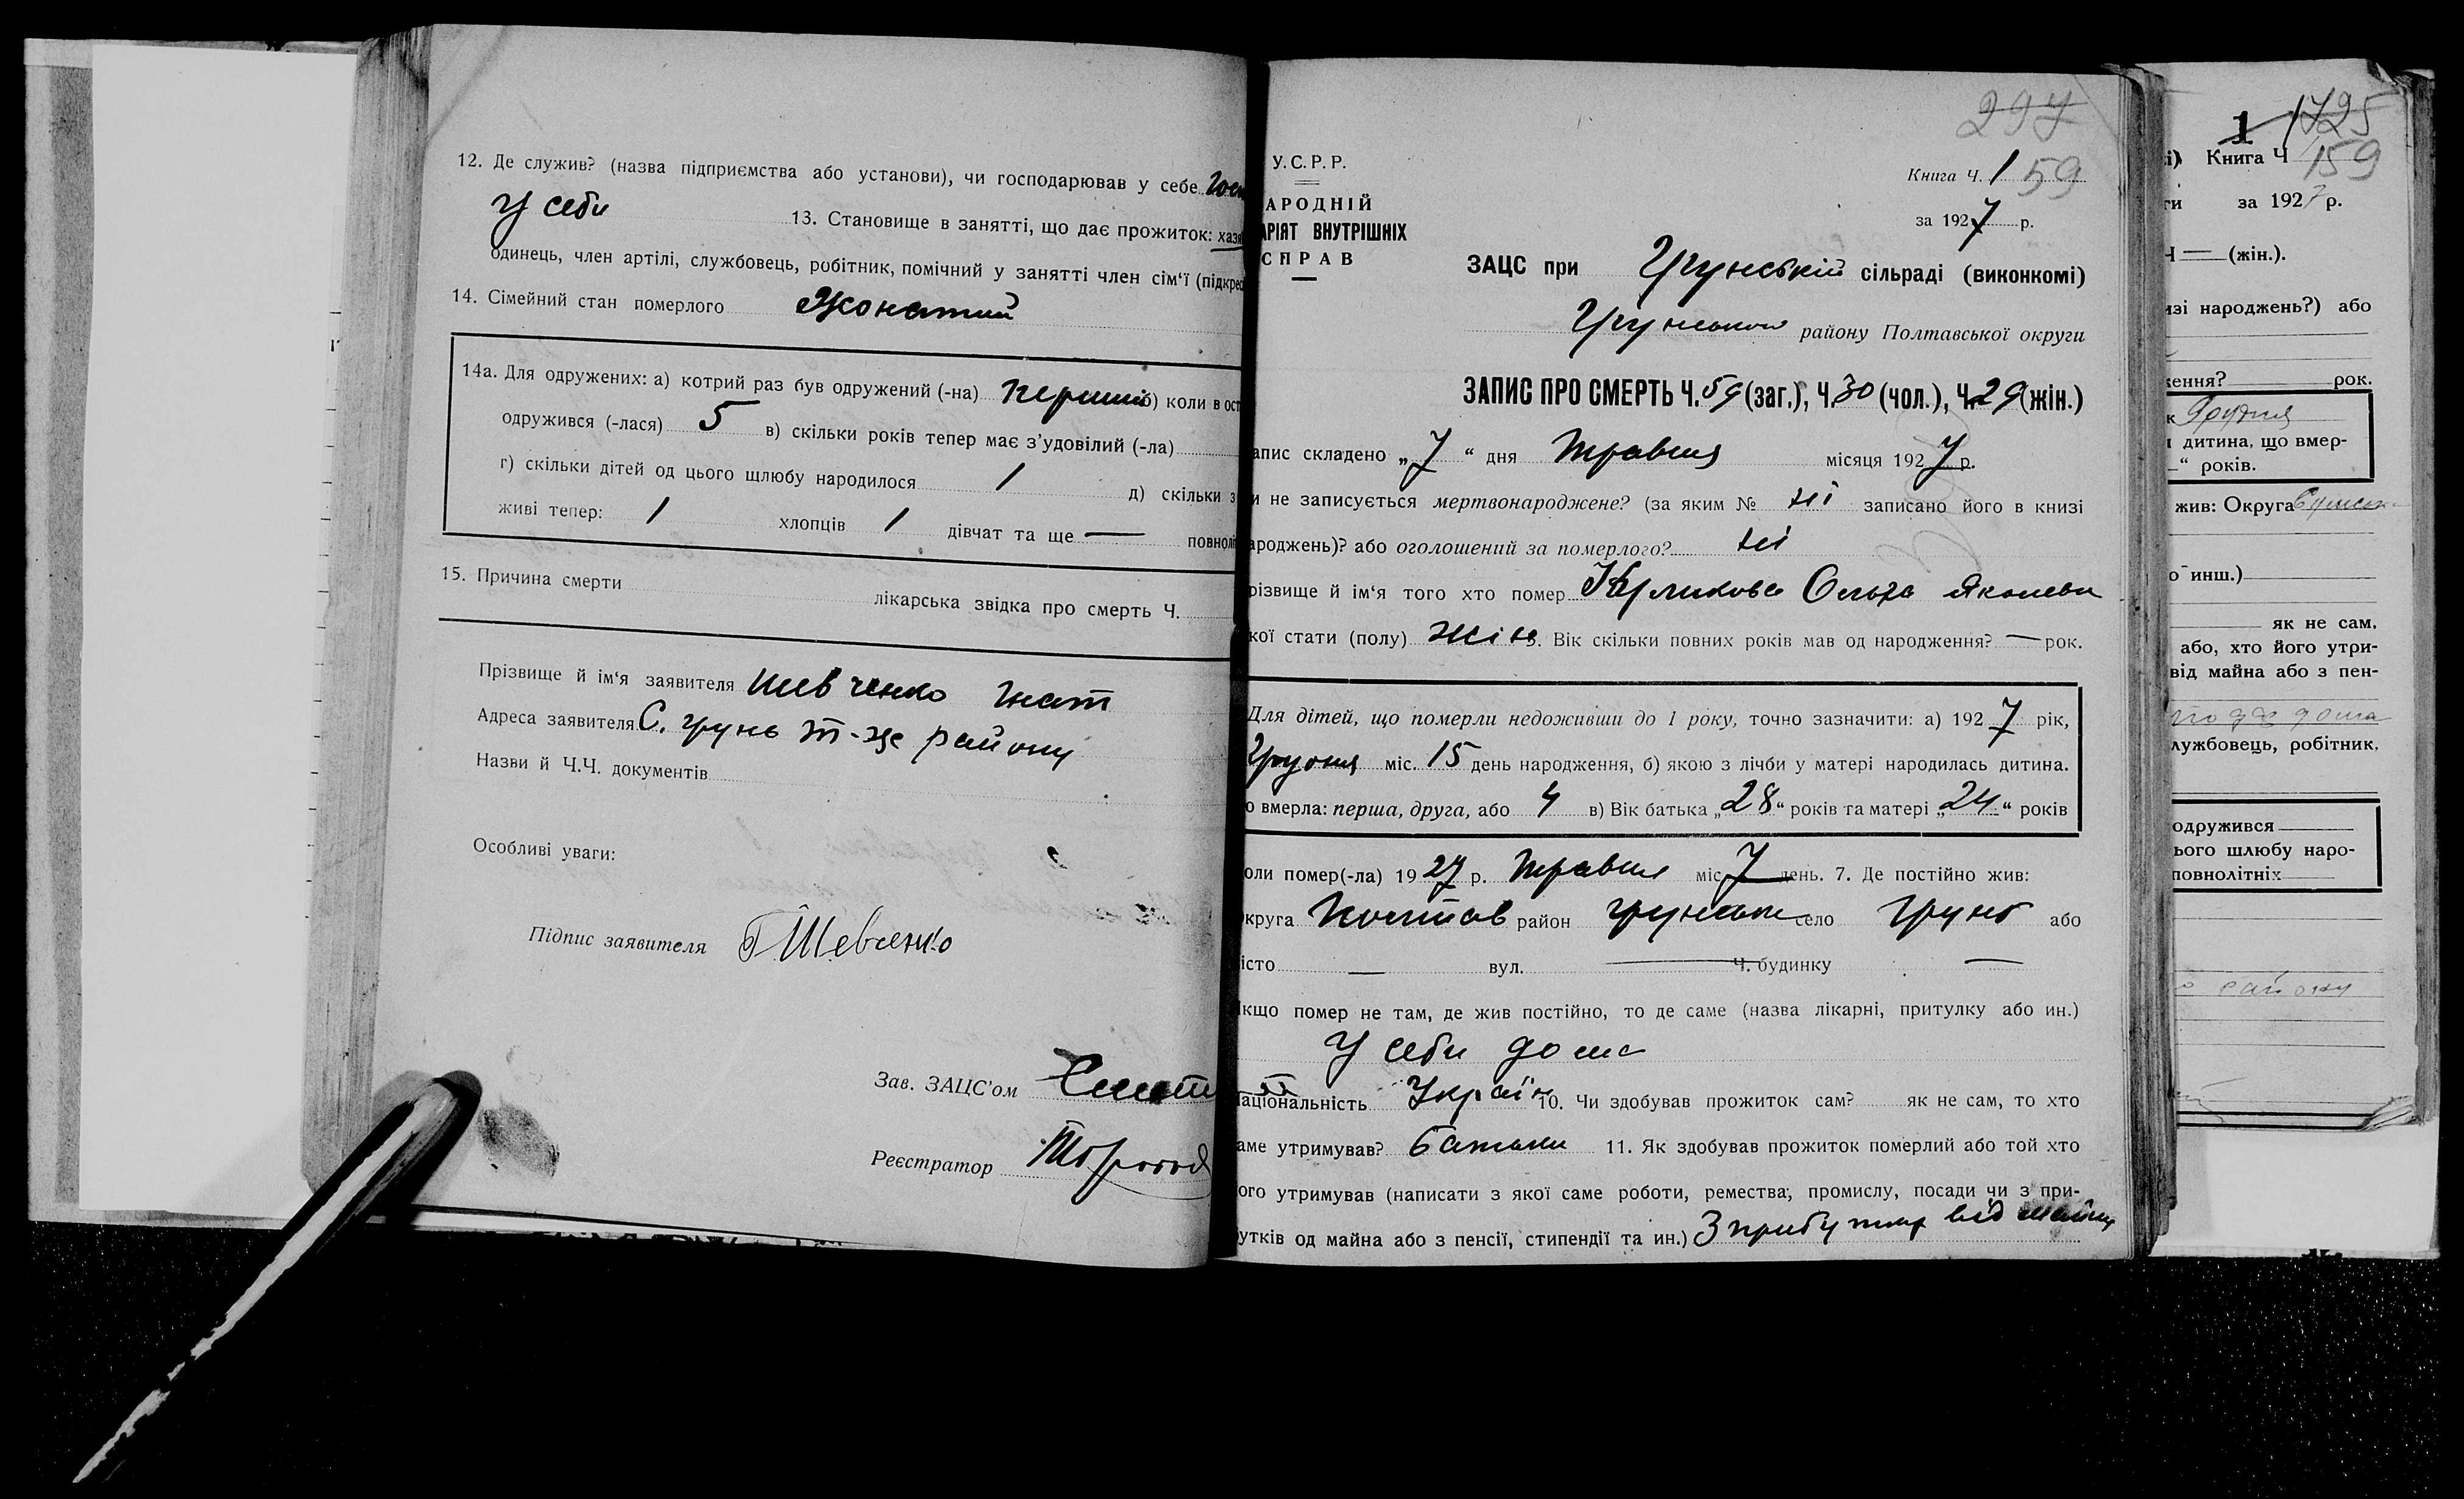 12. Де служив? (назва підприємства або установи), чи господарював у себе
у себи 13. Становище в занятті, що дає прожиток:
одинець, член артілі, службовець, робітник, помічний у занятті член сім'ї
14. Сімейний стан померлого Жонатий
14а. Для одружених: а) котрий раз був одружений (-на) б) коли в
одружився (-лася) 5 в) скільки років тепер має з'удовілий (-ла)
г) скільки дітей од цього шлюбу народилося 1 д) скільки
живі тепер: 1 хлопців 1 дівчат та ще —
15. Причина смерти
лікарська звідка про смерть Ч.
Прізвище й ім'я заявителя Шевченко
Адреса заявителя С. Грунь т-же району
Назви й Ч.Ч. документів
Особливі уваги:
Підпис заявителя Шевченко
Зав. ЗАЦС'ом
Реєстратор
297
У.С.Р.Р.
Книга Ч. 1 59
АРОДНІЙ
АРІЯТ ВНУТРІШНІХ
СПРАВ
за 1927 р.
ЗАЦС при Грунській сільраді (виконкомі)
району Полтавської округи
ЗАПИС ПРО СМЕРТЬ Ч. 59 (заг.), Ч. 30 (чол.), Ч. 29 (жін.)
апис складено „7“ дня Травня місяця 1927 р.
и не записується мертвонароджене? (за яким № ні записано його в книзі
ароджень)? або оголошений за померлого? ні
різвище й ім'я того хто помер Ольга
кої стати (полу) жін 3. Вік скільки повних років мав од народження? — рок.
Для дітей, що померли недоживши до 1 року, точно зазначити: а) 1927 рік,
міс. 15 день народження, б) якою з лічби у матері народилась дитина.
о вмерла: перша, друга, або 4 в) Вік батька „28“ років та матері „24“ років
оли помер(-ла) 1927 р. Травня міс 7 день. 7. Де постійно жив:
округа Полтав район Грунськ село Грунь або
істо — вул. — Ч. будинку —
кщо помер не там, де жив постійно, то де саме (назва лікарні, притулку або ин.)
У себи дома
аціональність Україн 10. Чи здобував прожиток сам? як не сам, то хто
аме утримував? батьки 11. Як здобував прожиток померлий або той хто
ого утримував (написати з якої саме роботи, ремества, промислу, посади чи з при-
утків од майна або з пенсії, стипендії та ин.) З прибутку від майна
1 1725
Книга Ч 159
за 1927 р.
Ч — (жін.).
изі народжень?) або
ження? рок.
Грудня
дитина, що вмер-
—“ років.
жив: Округа
о инш.)
як не сам,
або, хто його утри-
від майна або з пен-
дома
лужбовець, робітник,
одружився
ього шлюбу наро-
повнолітніх
району